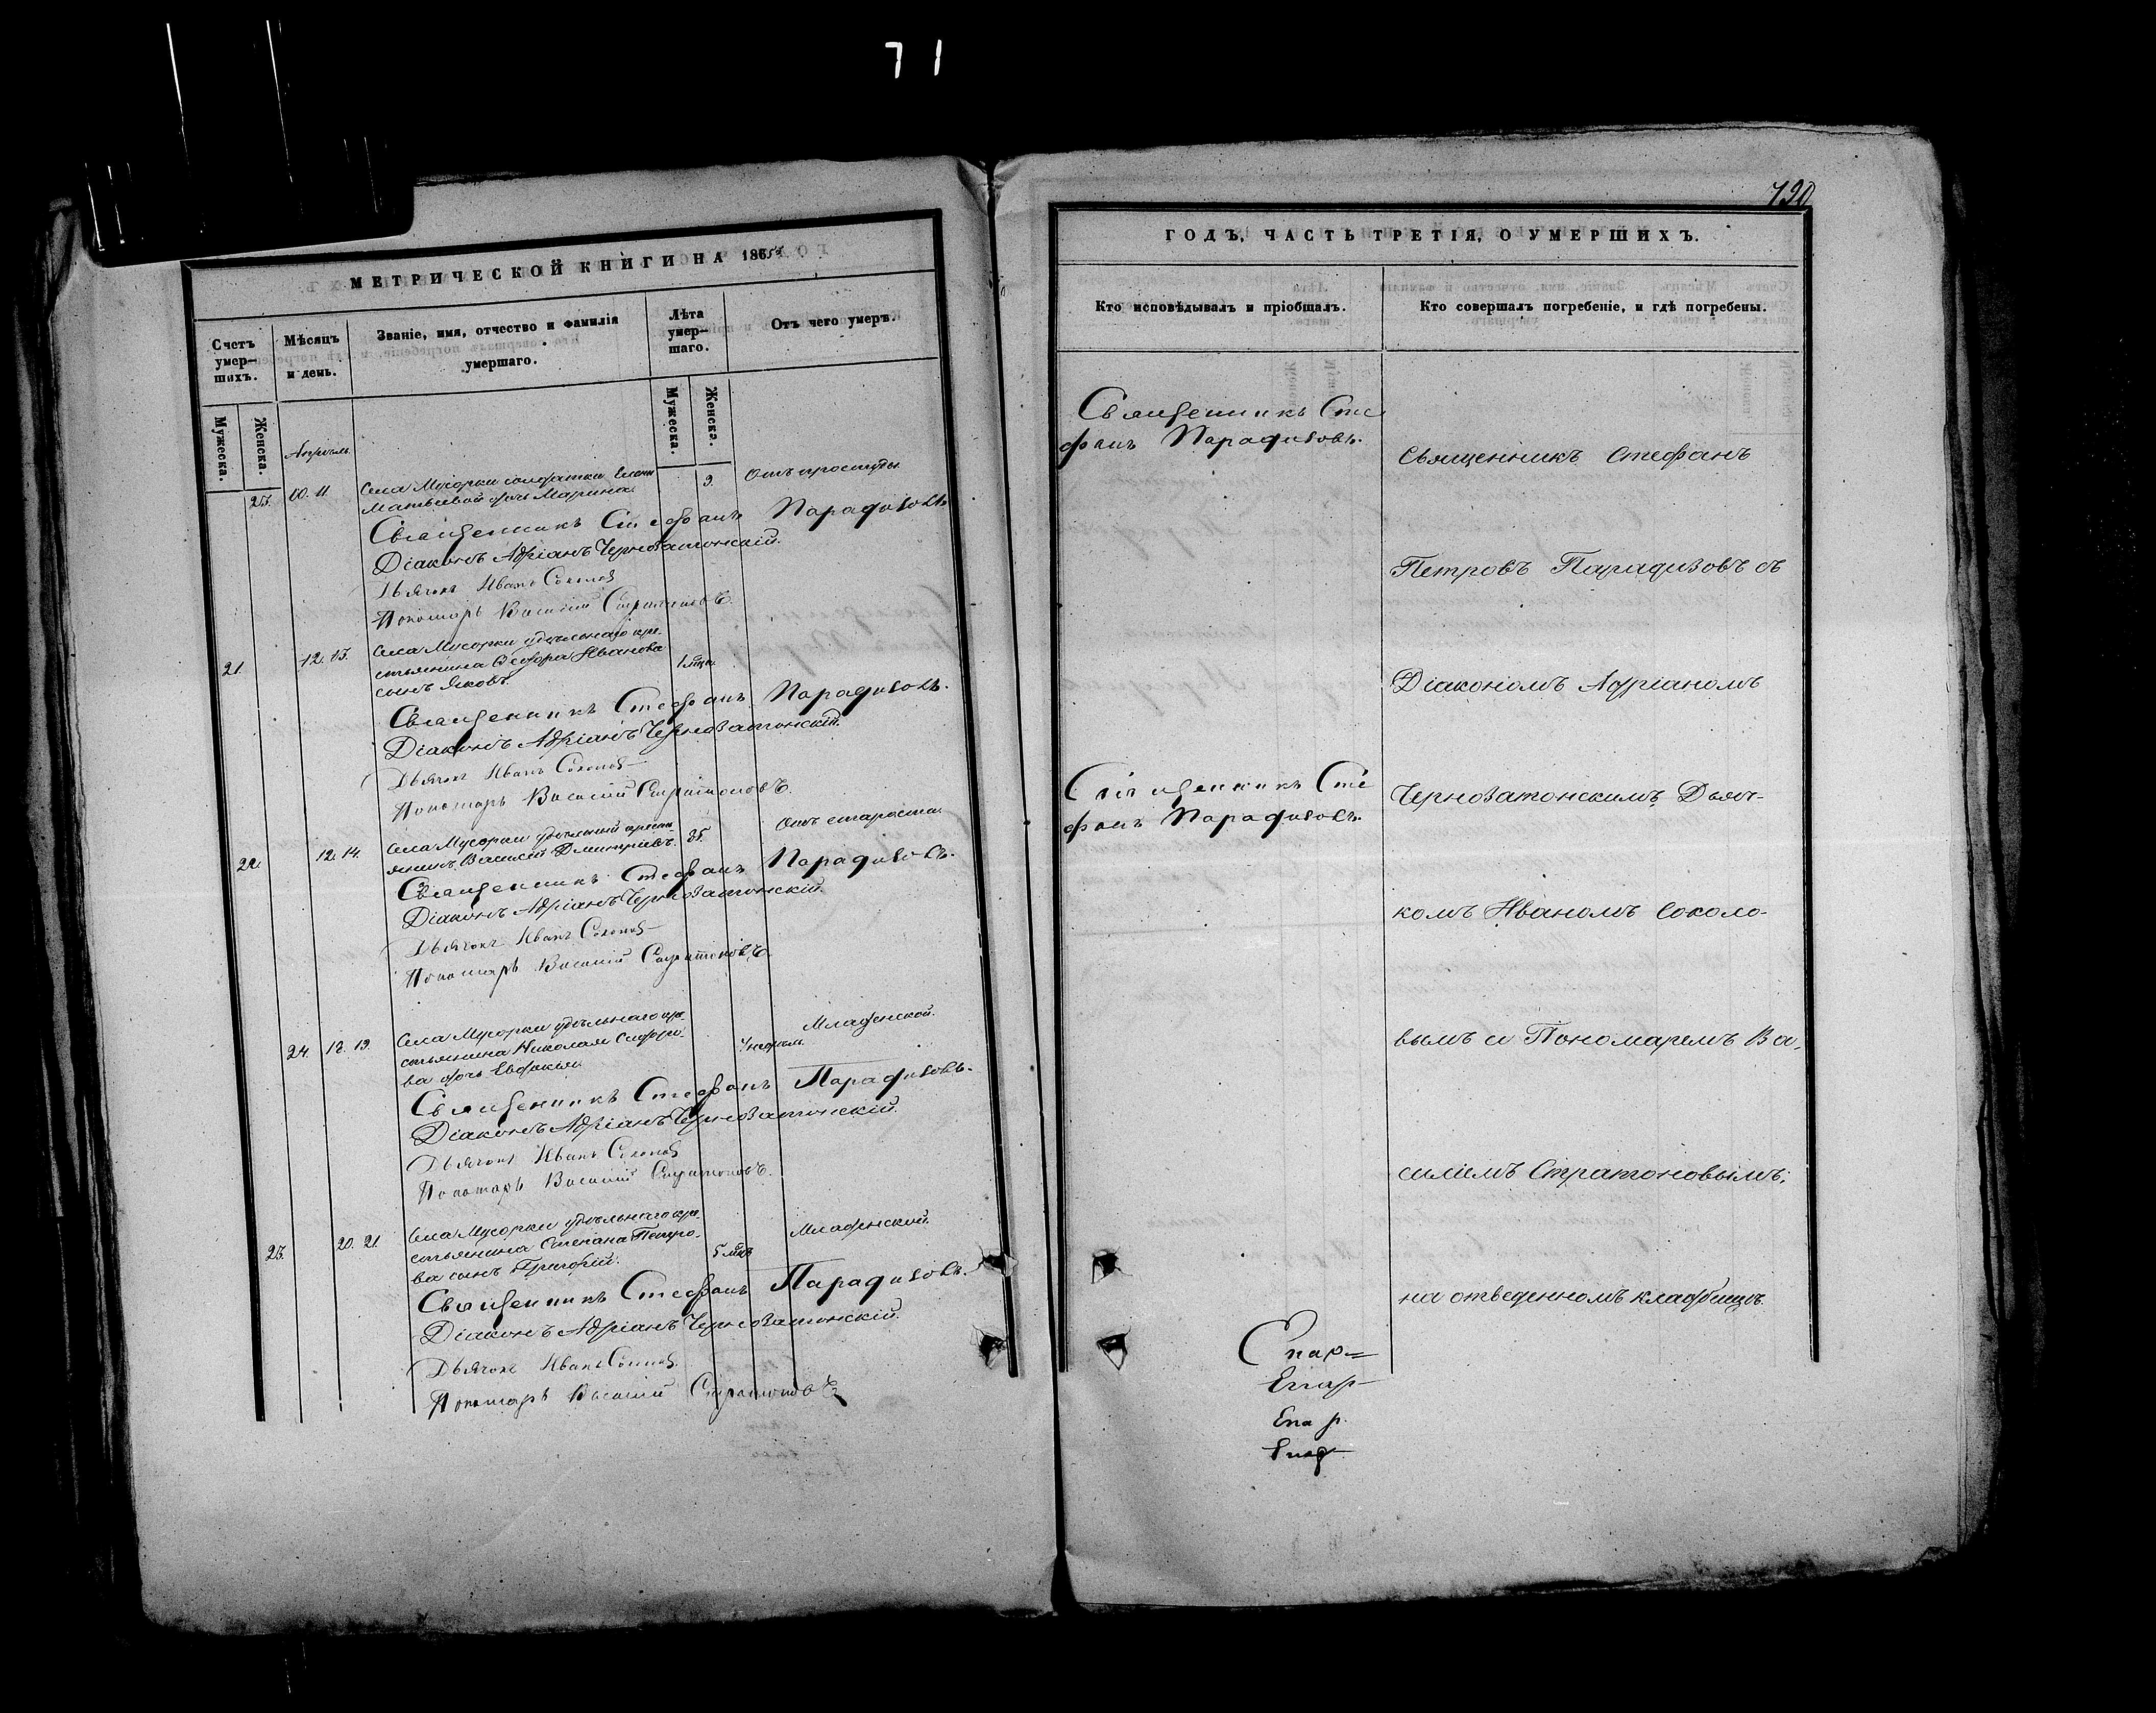 71
МЕТРИЧЕСКОЙ КНИГИ НА 1865й
Счетъ умер—шихъ.
Мѣсяцъ и день.
Званіе, имя, отчество и фамилія умершаго.
Лѣта умер—шаго.
Отъ чего умеръ.
Мужеска.
Женска.
Мужеска.
Женска.
Апрѣль.
23. 10. 11. Села Мусорки солдатки Елены 9. Отъ простуды.
Матвѣевой дочь Марина.
Священникъ Стефанъ Парадизовъ.
Діаконъ Адріанъ Чернозатонскій.
Дьячокъ Иванъ Соколов
Пономарь Василій Стратоновъ.
21. 12. 13. Села Мусорки удѣльнаго кре-
стьянина Ѳедора Иванова
сынъ Яковъ.
Священникъ Стефанъ Парадизовъ.
Діаконъ Адріанъ Чернозатонскій.
Дьячокъ Иванъ Соколов
Пономарь Василій Стратоновъ.
22. 12. 14. Села Мусорки удѣльный кресть- 85. Отъ старости.
янинъ Василій Дмитріевъ.
Священникъ Стефанъ Парадизовъ.
Діаконъ Адріанъ Чернозатонскій.
Дьячокъ Иванъ Соколов
Пономарь Василій Стратоновъ.
24. 18. 19. Села Мусорки удѣльнаго кре- Младенской.
стьянина Николая Сидоро-
ва дочь Евдокія.
Священникъ Стефанъ Парадизовъ.
Діаконъ Адріанъ Чернозатонскій.
Дьячокъ Иванъ Соколов
Пономарь Василій Стратоновъ.
23. 20. 21. Села Мусорки удѣльнаго кре- Младенской.
стьянина Степана Петро-
ва сынъ Григорій. 5 мѣс
Священникъ Стефанъ Парадизовъ.
Діаконъ Адріанъ Чернозатонскій.
Дьячокъ Иванъ Соколов
Пономарь Василій Стратоновъ
790
ГОДЪ, ЧАСТЬ ТРЕТІЯ, О УМЕРШИХЪ.
Кто исповѣдывалъ и пріобщалъ.
Кто совершалъ погребеніе, и гдѣ погребены.
Священникъ Сте
фанъ Парадизовъ.
Священникъ Сте
фанъ Парадизовъ.
Священникъ Стефанъ
Петровъ Парадизовъ съ
Діакономъ Адріаномъ
Чернозатонскимъ, Дьяч-
комъ Иваномъ Соколо-
вымъ и Пономаремъ Ва-
силіемъ Стратоновымъ;
на отведенномъ кладбищѣ.